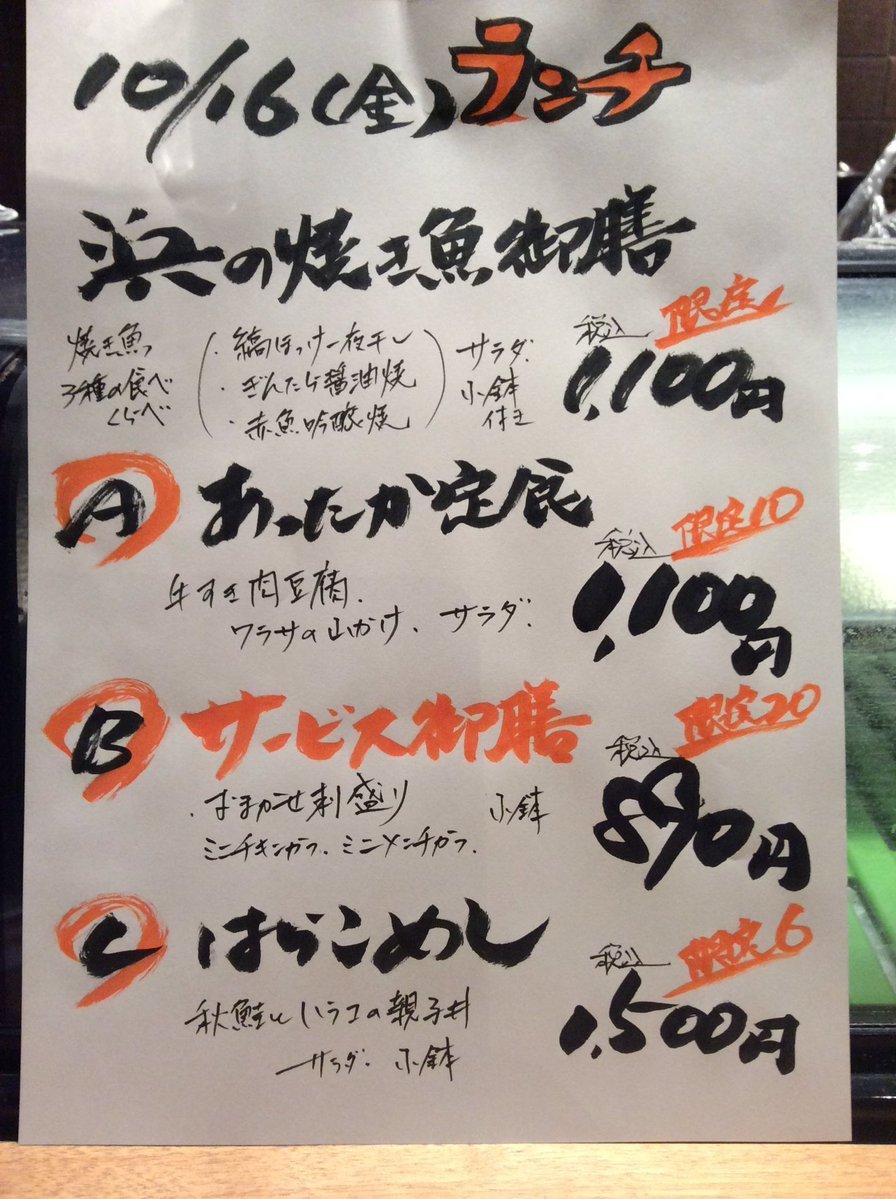 10/16(金)ランチ
浜の焼き魚御膳
限定
税込
1,100円
焼き魚
3種の食べ
くらべ
(・縞ほっけ一夜干し
・ぎんだら醤油焼
・赤魚吟醸焼)
サラダ.
小鉢
付
A あったか定食
限定10
税込
1,100円
牛すき肉豆腐.
ワラサの山かけ、サラダ.
B サービス御膳
限定20
税込
890円
・おまかせ刺盛り 小鉢
ミニチキンカツ.ミニメンチカツ.
C はらこめし
限定6
税込
1,500円
秋鮭とハラコの親子丼
サラダ. 小鉢